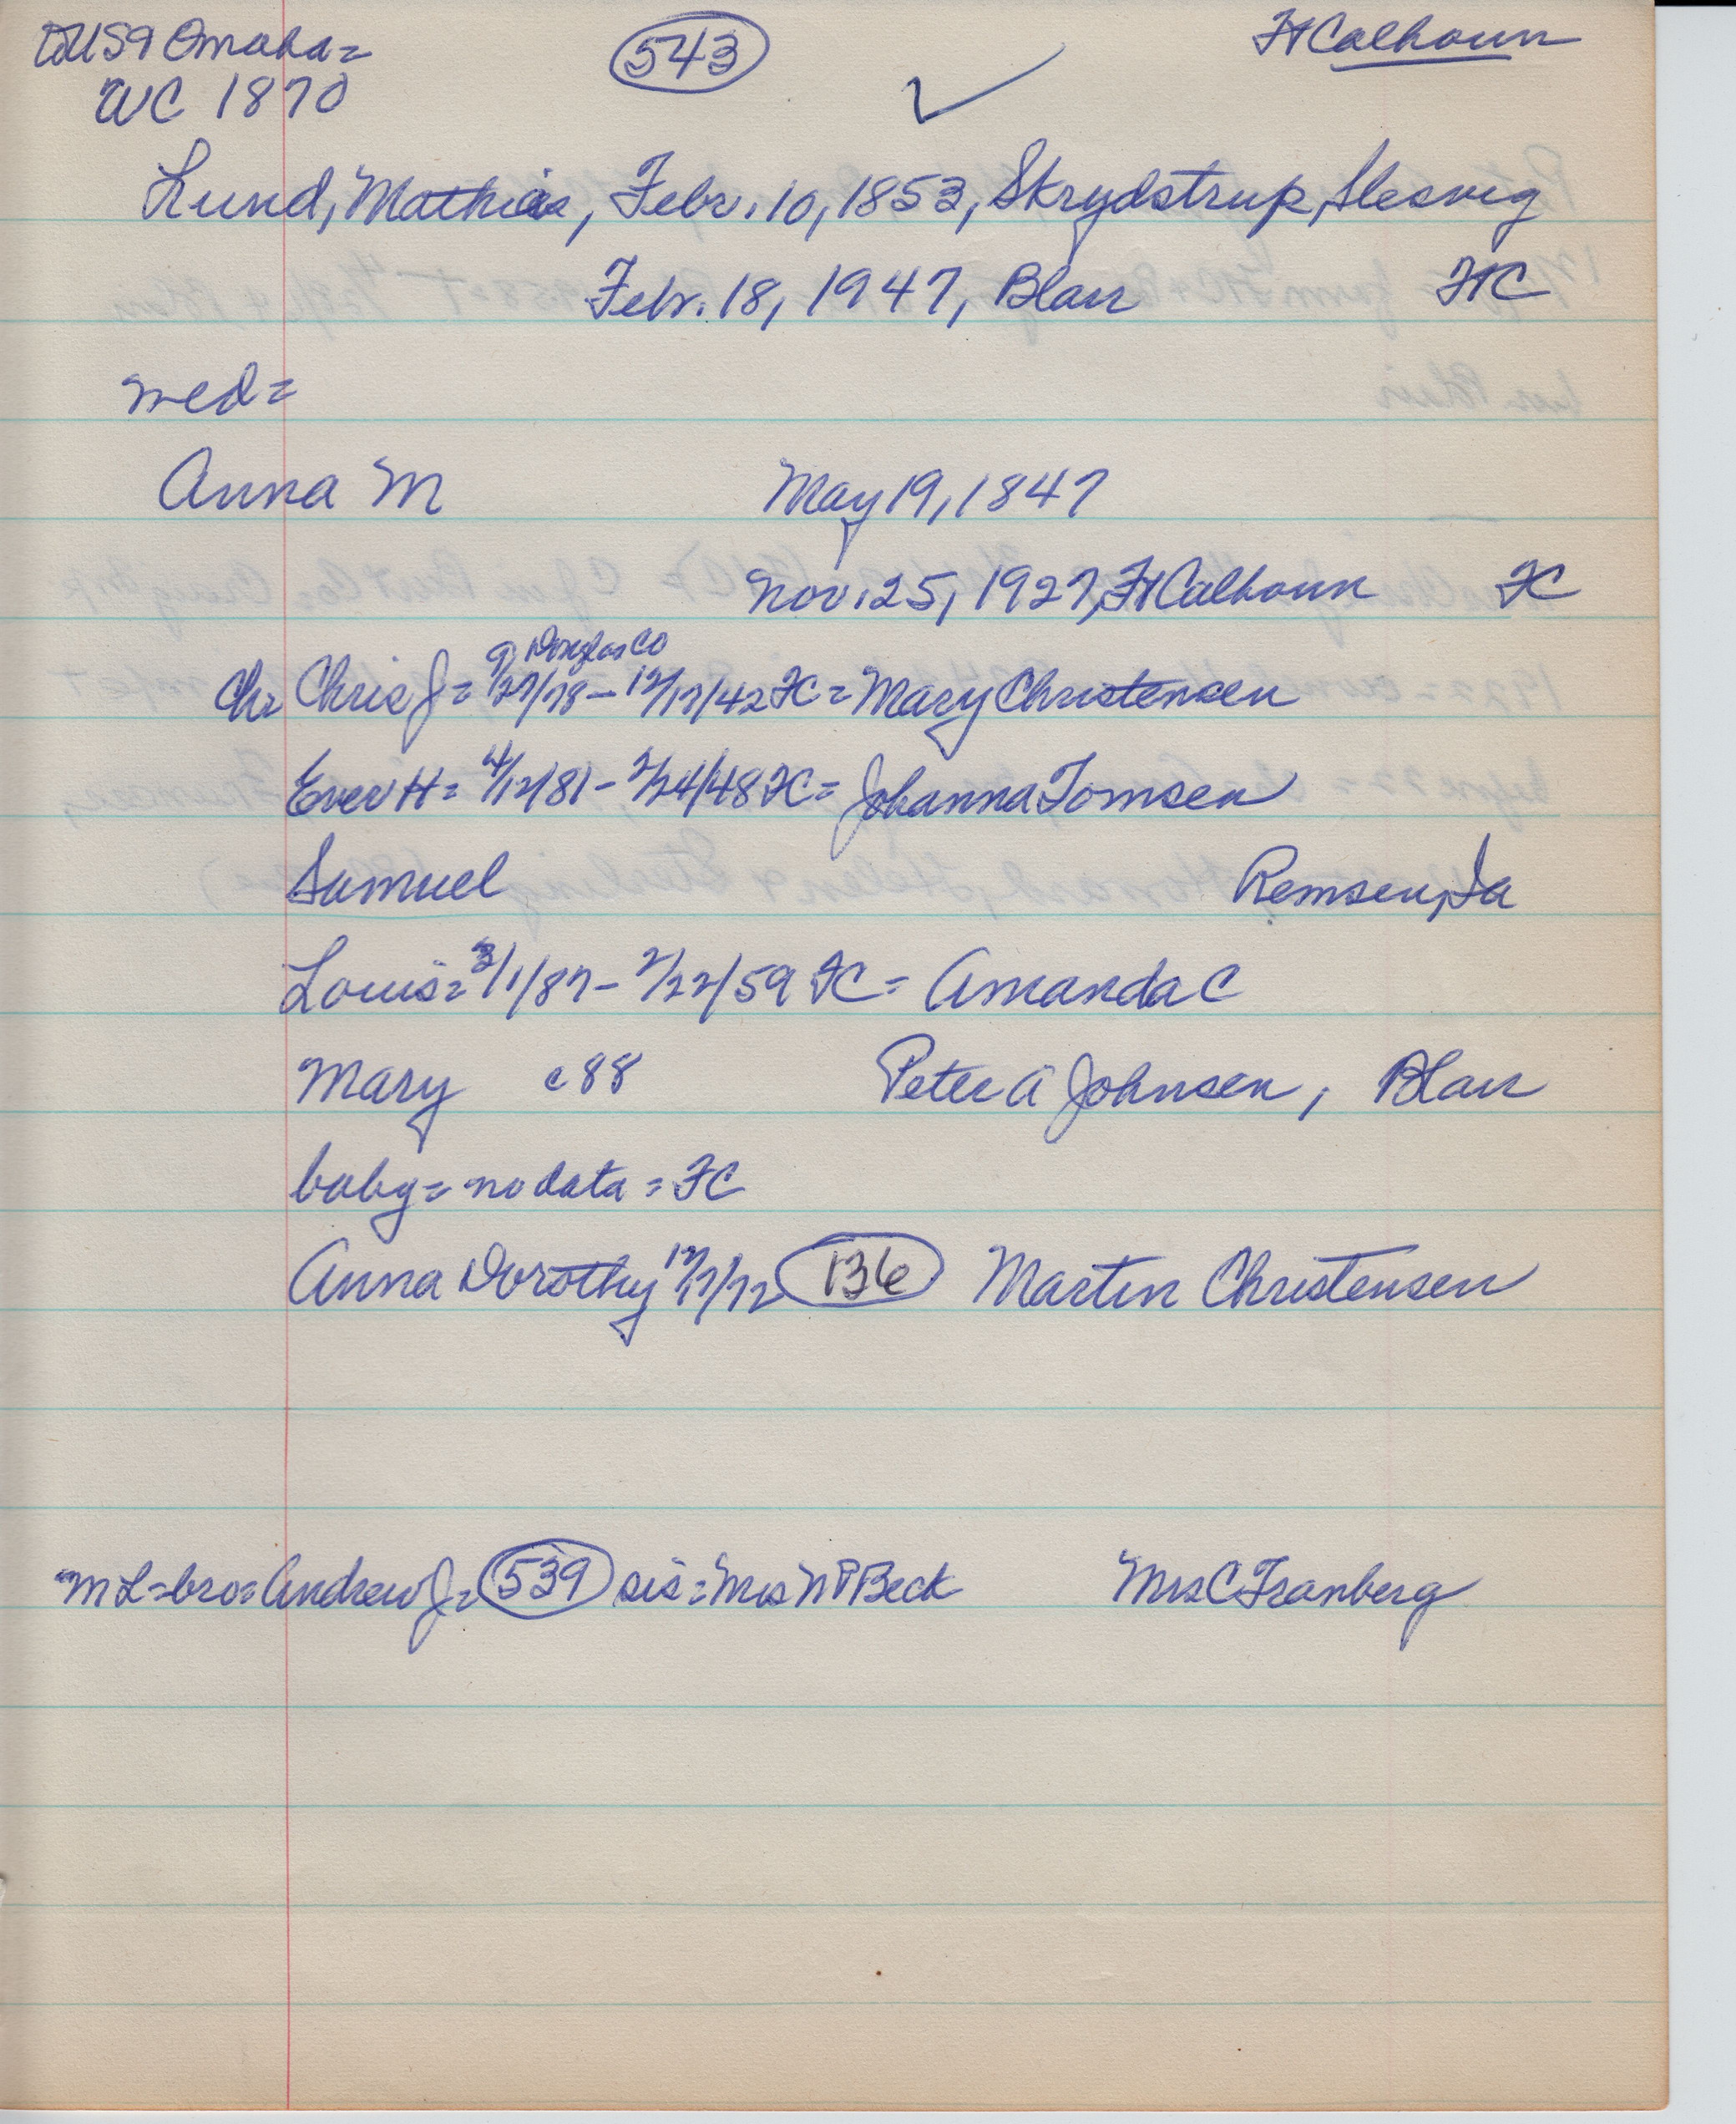 Omaha =
WC 1870
543
Ft Calhoun
Lund, Mathias, Febr. 10, 1853, Skrydstrup, Slesvig
Febr. 18, 1947, Blair FtC
med =
Anna M May 19, 1847
Nov. 25, 1927, Ft Calhoun FC
Douglas Co
Ch = Chris J = 9/27/78 - 12/17/42 FC = Mary Christensen
Ever H = 4/12/81 - 2/24/48 FC = Johanna Tomsen
Samuel Remsen, Ia
Louis = 3/1/87 - 2/22/59 FC = Amanda C
Mary c 88 Peter A Johnsen, Blair
baby = no data = FC
Anna Dorothy 12/7/72 136 Martin Christensen
M L = bro = Andrew J = 539 sis = Mrs N P Beck Mrs C Franberg